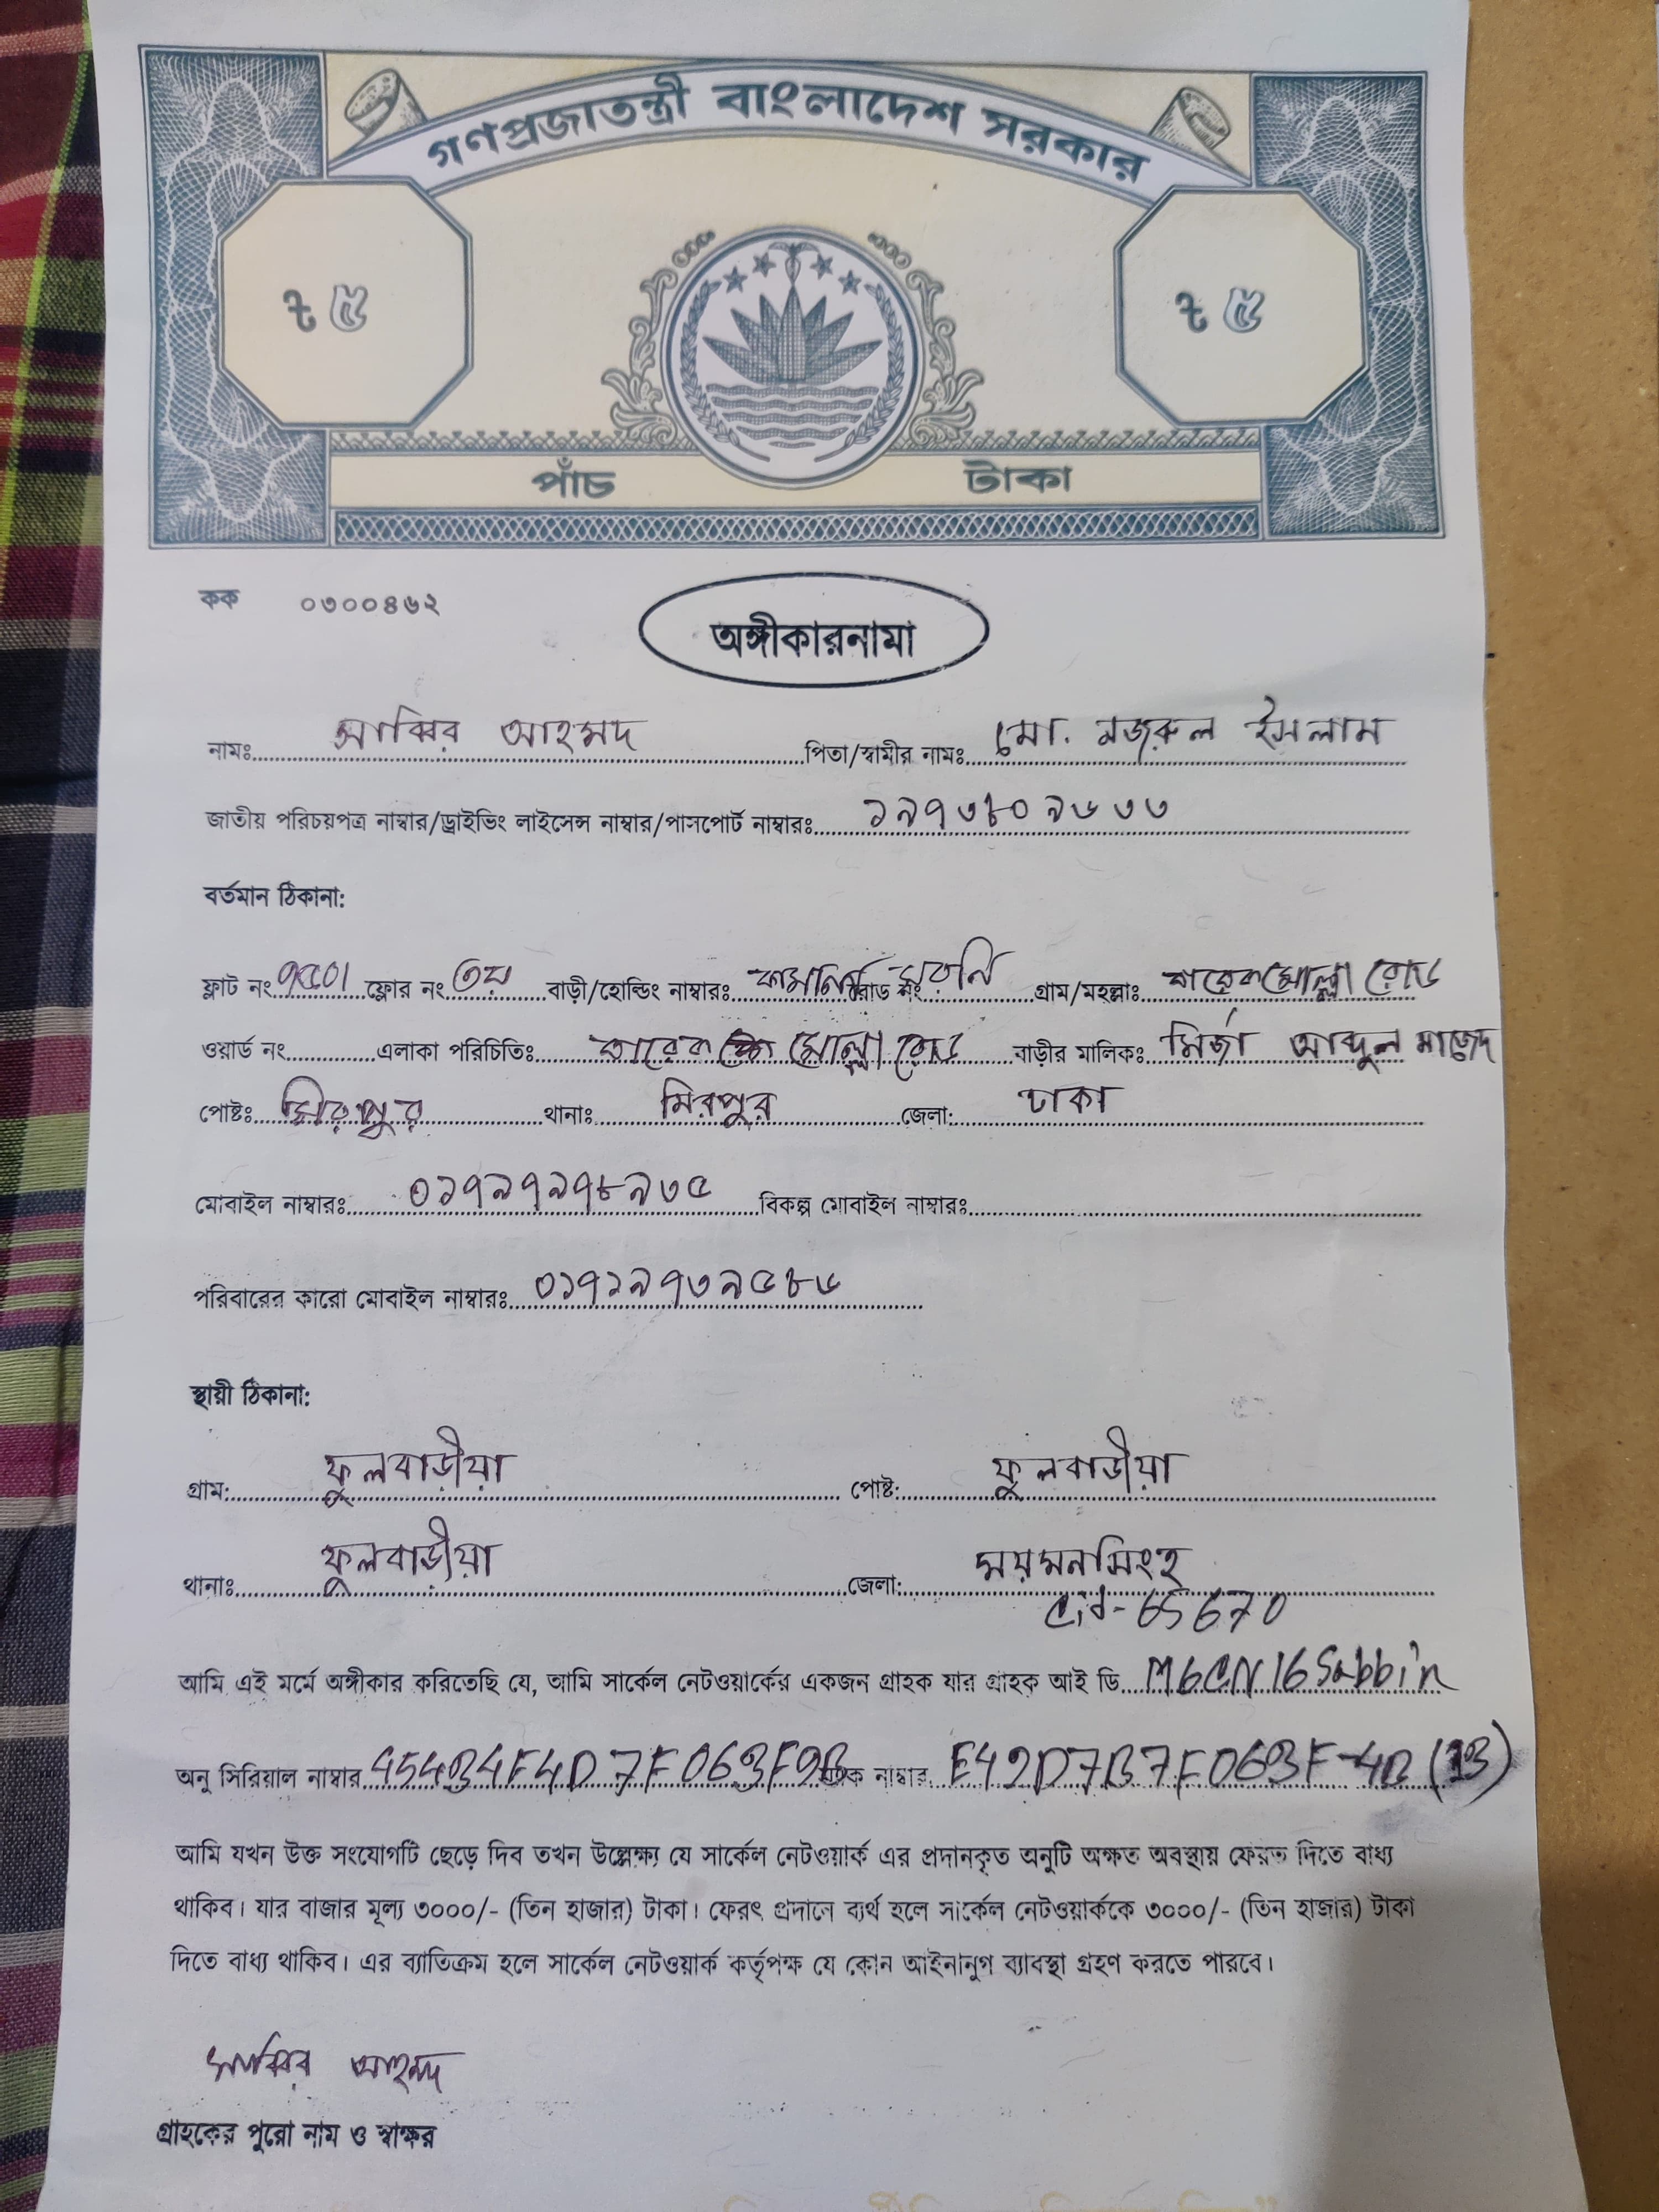 গণপ্রজাতন্ত্রী বাংলাদেশ সরকার
৳ ৫ ৳ ৫
পাঁচ টাকা
কক ০৩০০৪৬২
অঙ্গীকারনামা
নামঃ সাব্বির আহমদ পিতা/স্বামীর নামঃ মো. নজরুল ইসলাম
জাতীয় পরিচয়পত্র নাম্বার/ড্রাইভিং লাইসেন্স নাম্বার/পাসপোর্ট নাম্বারঃ ১৯৭৩৮০৯৬৩৩
বর্তমান ঠিকানা:
ফ্লাট নং ফ্লোর নং ৩য় বাড়ী/হোল্ডিং নাম্বারঃ রোড নং গ্রাম/মহল্লাঃ মোল্লা রোড
ওয়ার্ড নং এলাকা পরিচিতিঃ মোল্লা রোড বাড়ীর মালিকঃ মির্জা আব্দুল মাজেদ
পোষ্টঃ মীরপুর থানাঃ মিরপুর জেলা: ঢাকা
মোবাইল নাম্বারঃ ০১৭৯৭৯৭৮৯৩৫ বিকল্প মোবাইল নাম্বারঃ
পরিবারের কারো মোবাইল নাম্বারঃ ০১৭১৯৭৩৯৫৮৬
স্থায়ী ঠিকানা:
গ্রাম: ফুলবাড়ীয়া পোষ্ট: ফুলবাড়ীয়া
থানাঃ ফুলবাড়ীয়া জেলা: ময়মনসিংহ
Cid-65670
আমি এই মর্মে অঙ্গীকার করিতেছি যে, আমি সার্কেল নেটওয়ার্কের একজন গ্রাহক যার গ্রাহক আই ডি M6CN16Sabbir
অনু সিরিয়াল নাম্বার 454B4F4D7F063F9B ম্যাক নাম্বার E42D7B7F063F-4B (13)
আমি যখন উক্ত সংযোগটি ছেড়ে দিব তখন উল্লেক্ষ্য যে সার্কেল নেটওয়ার্ক এর প্রদানকৃত অনুটি অক্ষত অবস্থায় ফেরত দিতে বাধ্য
থাকিব। যার বাজার মূল্য ৩০০০/- (তিন হাজার) টাকা। ফেরৎ প্রদানে ব্যর্থ হলে সার্কেল নেটওয়ার্ককে ৩০০০/- (তিন হাজার) টাকা
দিতে বাধ্য থাকিব। এর ব্যাতিক্রম হলে সার্কেল নেটওয়ার্ক কর্তৃপক্ষ যে কোন আইনানুগ ব্যাবস্থা গ্রহণ করতে পারবে।
সাব্বির আহমদ
গ্রাহকের পুরো নাম ও স্বাক্ষর